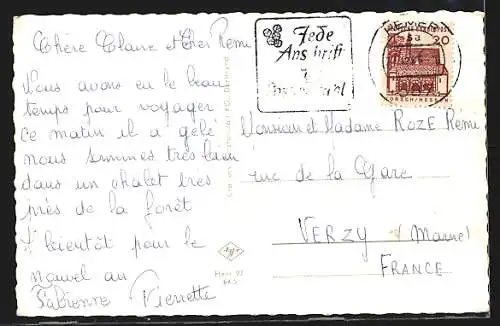 Chère Claire et Cher Remi
Nous avons eu le beau
temps pour voyager
ce matin il a gelé
nous sommes très bien
dans un chalet très
près de la forêt
A bientôt pour le
nouvel an
Fabienne Pierrette
Jede
Anschrift
20
LORSCH/HESSEN
Monsieur et Madame ROZE Remi
rue de la Gare
VERZY Marne
FRANCE